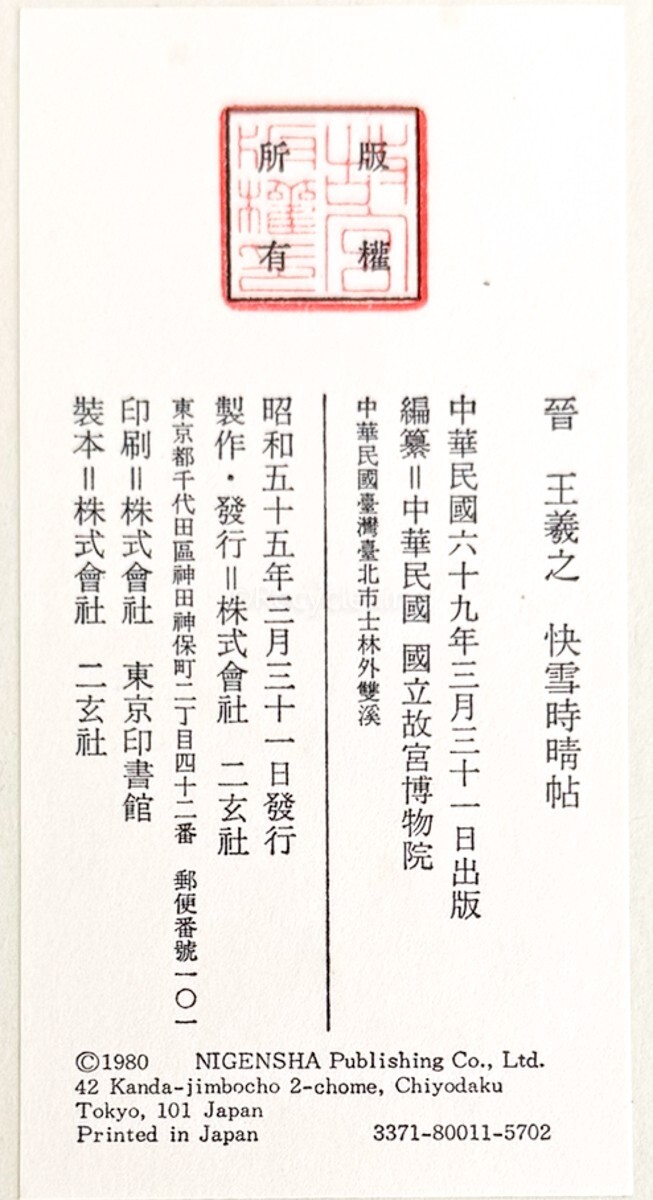 版權
所有
晉　王羲之　快雪時晴帖
中華民國六十九年三月三十一日出版
編纂＝中華民國　國立故宮博物院
中華民國臺灣臺北市士林外雙溪
昭和五十五年三月三十一日發行
製作・發行＝株式會社　二玄社
東京都千代田區神田神保町二丁目四十二番　郵便番號一〇一
印刷＝株式會社　東京印書館
裝本＝株式會社　二玄社
©1980 NIGENSHA Publishing Co., Ltd.
42 Kanda-jimbocho 2-chome, Chiyodaku
Tokyo, 101 Japan
Printed in Japan 3371-80011-5702